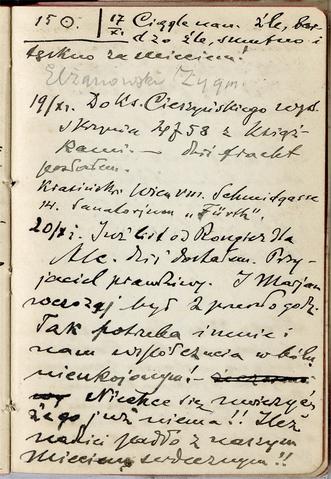 150. 17/XI. Ciągle nam źle, bar-
dzo źle, smutno i
tęskno za Mieciem!
Ewanowski Zygm.
19/XI. Do Ks. Cieszyńskiego wysł.
skrzynia 58 z książ-
kami. — dziś fracht
posłałem.
Krasiński Wien VIII. Schmidgasse
14. Sanatorjum „Fürth".
20/XI. Już list od Rongier dla
Mc. dziś dostałem. Przy-
jaciel prawdziwy. I Marjan
wczoraj był z prawdo godz.
Tak potrzeba i mnie i
nam współczucia w bólu
nieukojonym! —
Niechce się wierzyć
że go już niema!! Ileż
nadziei padło z naszym
Mieciem serdecznym!!